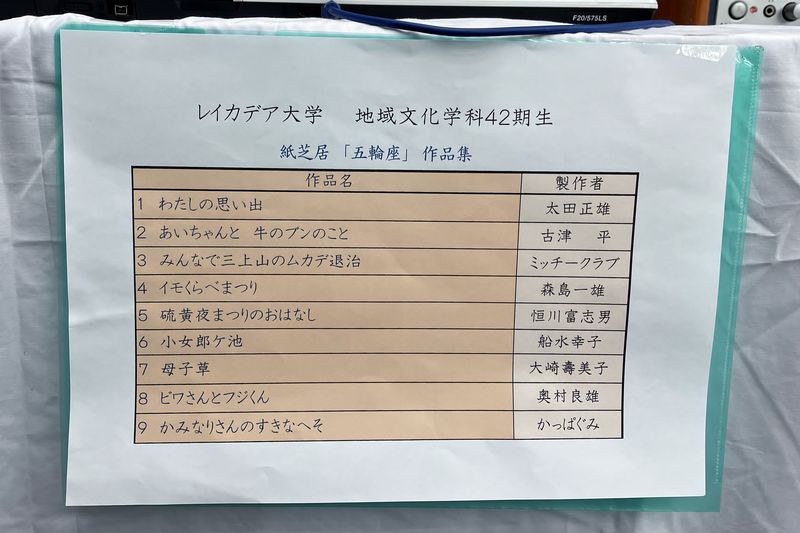 F20/575LS
レイカデア大学 地域文化学科42期生
紙芝居 「五輪座」 作品集
作品名 製作者
1 わたしの思い出 太田正雄
2 あいちゃんと 牛のブンのこと 古津 平
3 みんなで三上山のムカデ退治 ミッチークラブ
4 イモくらべまつり 森島一雄
5 硫黄夜まつりのおはなし 恒川富志男
6 小女郎ケ池 船水幸子
7 母子草 大崎壽美子
8 ビワさんとフジくん 奥村良雄
9 かみなりさんのすきなへそ かっぱぐみ